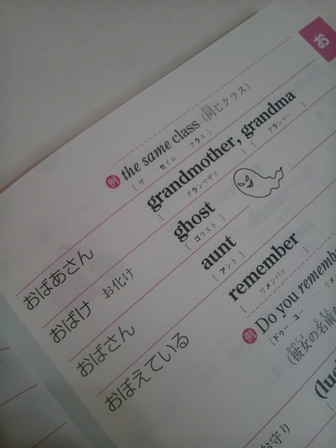 お
例 the same class (同じクラス)
[ ザ セイム クラス ]
おばあさん grandmother, grandma
[ グランマザァ ] [ グランマー ]
おばけ お化け ghost
[ ゴウスト ]
おばさん aunt
[ アント ]
おぼえている remember
[ リメンバァ ]
例 Do you rememb
[ドゥー ユー リメ
(彼女の名前
お守り (lu